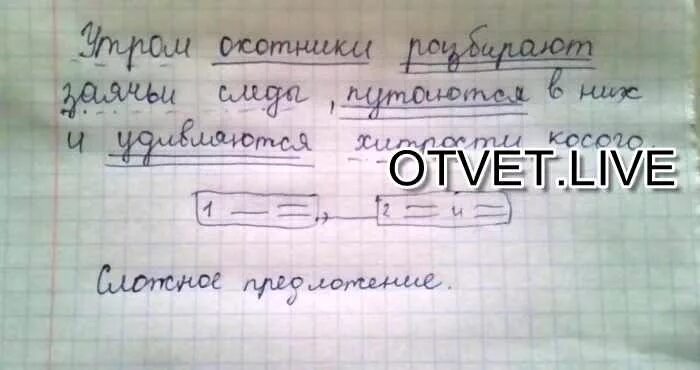 Утром охотники разбирают
заячьи следы, путаются в них
и удивляются хитрости косого.
OTVET.LIVE
1 2 и
Сложное предложение.